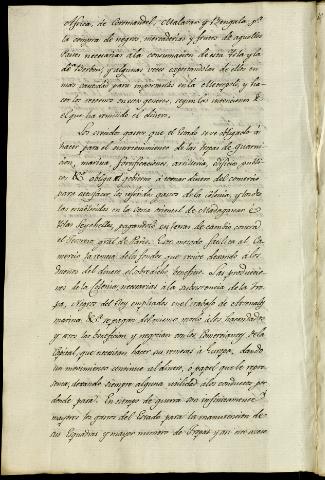 Africa, de Coromandel, Malabar y Bengala, pª
la compra de negros, mercaderias y frutos de aquellos
Paises necesarias á la consumacion de esta Ysla y la
de Borbon, y algunas veces exportandolas de ellas en
mas cantidad para importarlas en la Metropoli, y ha-
cer los retornos en esos generos, segun las intenciones de
el que ha remitido el dinero.
Los crecidos gastos que el Estado se ve obligado á
hacer para el entretenimiento de las tropas de Guarni-
cion, marina, fortificaciones, artilleria, obras publi-
cas &ª obliga al gobierno á tomar dinero del comercio
para satisfacer los referidos gastos de la Colonia, y los de
los establecidos en la Costa oriental de Madagascar é
Yslas Seychelles, pagandole en letras de cambio contra
el Tesorero gral de Paris. Este metodo facilita al Co-
mercio la remesa de los fondos que tiene dexando á los
dueños del dinero el sobredicho beneficio. Las produccio-
nes de la Colonia, necesarias á la subsistencia de la Tro-
pa, y Negros del Rey empleados en el trabajo de
marina &ª se pagan del mismo modo á los Hacendados
y estos las benefician y negocian con los Comerciantes de la
Capital, que necesitan hacer sus remesas á Europa, dando
un movimiento continuo al dinero, ó papel que lo repre-
senta, dexando siempre alguna utilidad á los conductos por
donde pasa. En tiempo de guerra son infinitamente
mayores los gastos del Estado para la manutencion de
sus Esquadras y mayor numero de Tropas y asi no